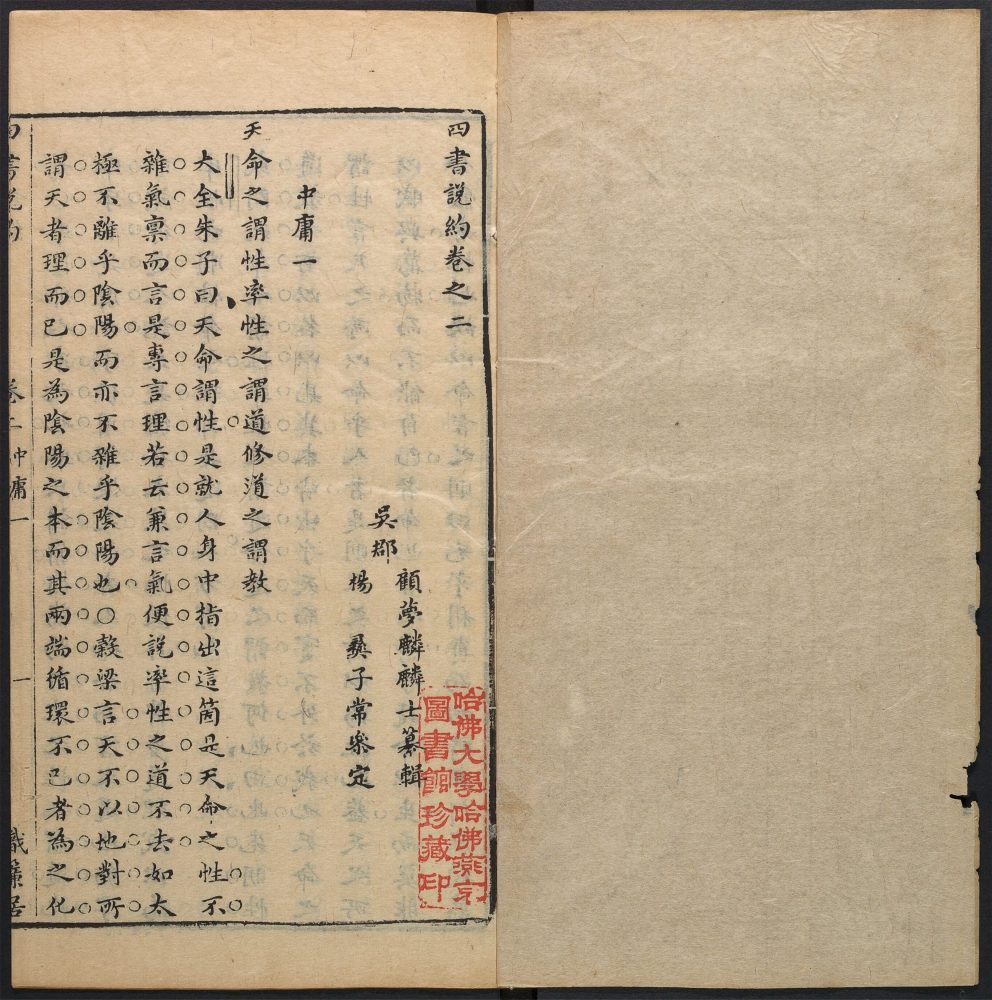 四書説約卷之二
吳郡
顧夢麟麟士纂輯
楊彝子常參定
中庸一
天命之謂性率性之謂道修道之謂教
大全朱子曰天命謂性是就人身中指出這箇是天命之性不
雜氣禀而言是專言理若云兼言氣便説率性之道不去如太
極不離乎陰陽而亦不雜乎陰陽也〇穀梁言天不以地對所
謂天者理而已是為陰陽之本而其兩端循環不已者為之化
四書説約 卷二中庸一 一 織簾居
哈佛大學哈佛燕京
圖書館珍藏印